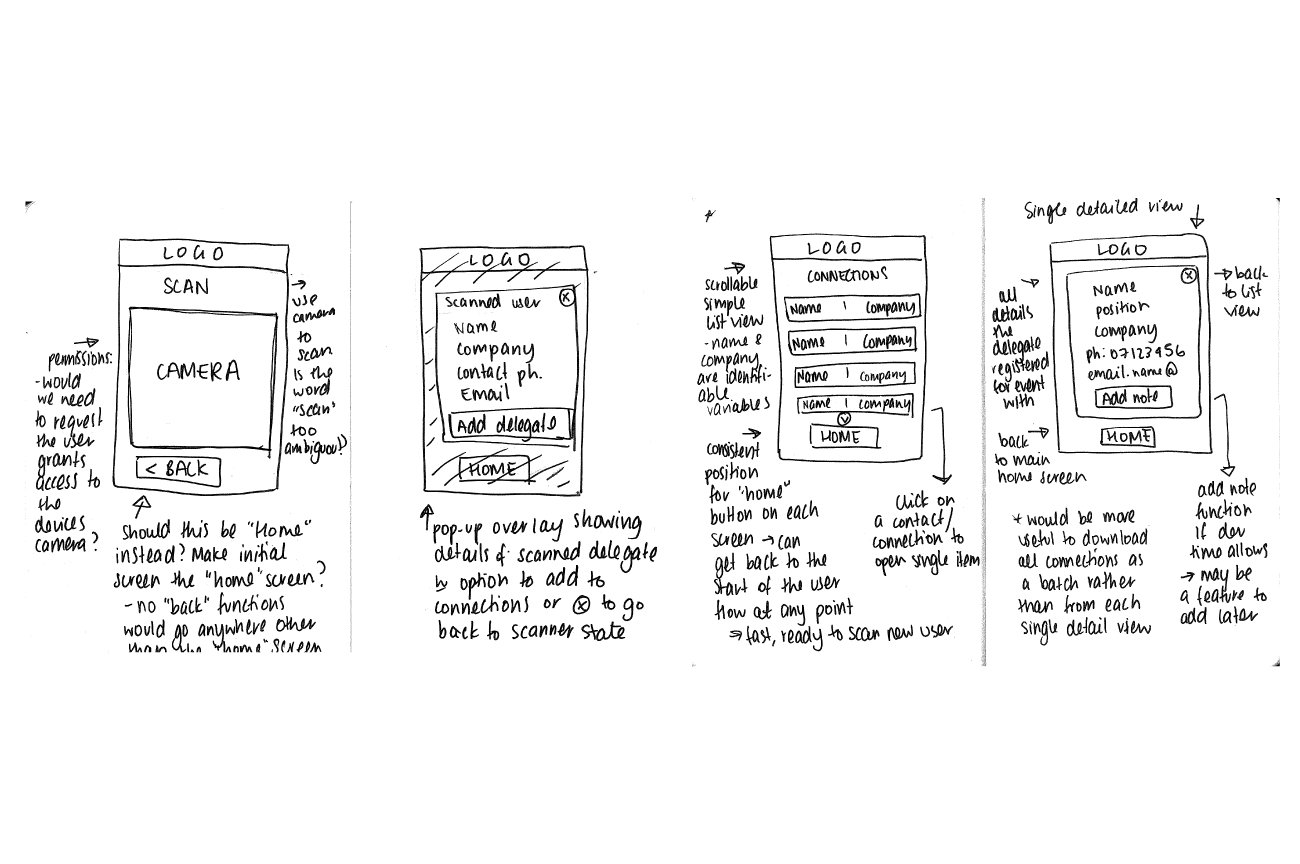 LOGO
SCAN
CAMERA
< BACK
→
permissions:
- would
we need
to request
the user
grants
access to
the
devices
camera?
→
use
camera
to
scan
is the
word
"scan"
too
ambiguous?
should this be "Home"
instead? Make initial
screen the "home" screen?
- no "back" functions
would go anywhere other
than the "home" screen
LOGO
Scanned user ⓧ
Name
Company
Contact ph.
Email
Add delegate
HOME
pop-up overlay showing
details of scanned delegate
↳ option to add to
connections or ⓧ to go
back to scanner state
→
scrollable
simple
list view
- name &
company
are identifi-
able
variables
LOGO
CONNECTIONS
Name | Company
Name | Company
Name | Company
Name | Company
HOME
→
consistent
position
for "home"
button on each
screen → can
get back to the
start of the user
flow at any point
⇒ fast, ready to scan new user
click on
a contact/
connection to
open single item
Single detailed view
→
all
details
the
delegate
registered
for event
with
LOGO
ⓧ
Name
position
company
ph: 07123456
email.name@
Add note
HOME
→ back
to list
view
back →
to main
home screen
* would be more
useful to download
all connections as
a batch rather
than from each
single detail view
add note
function
if dev
time allows
→ may be
a feature to
add later